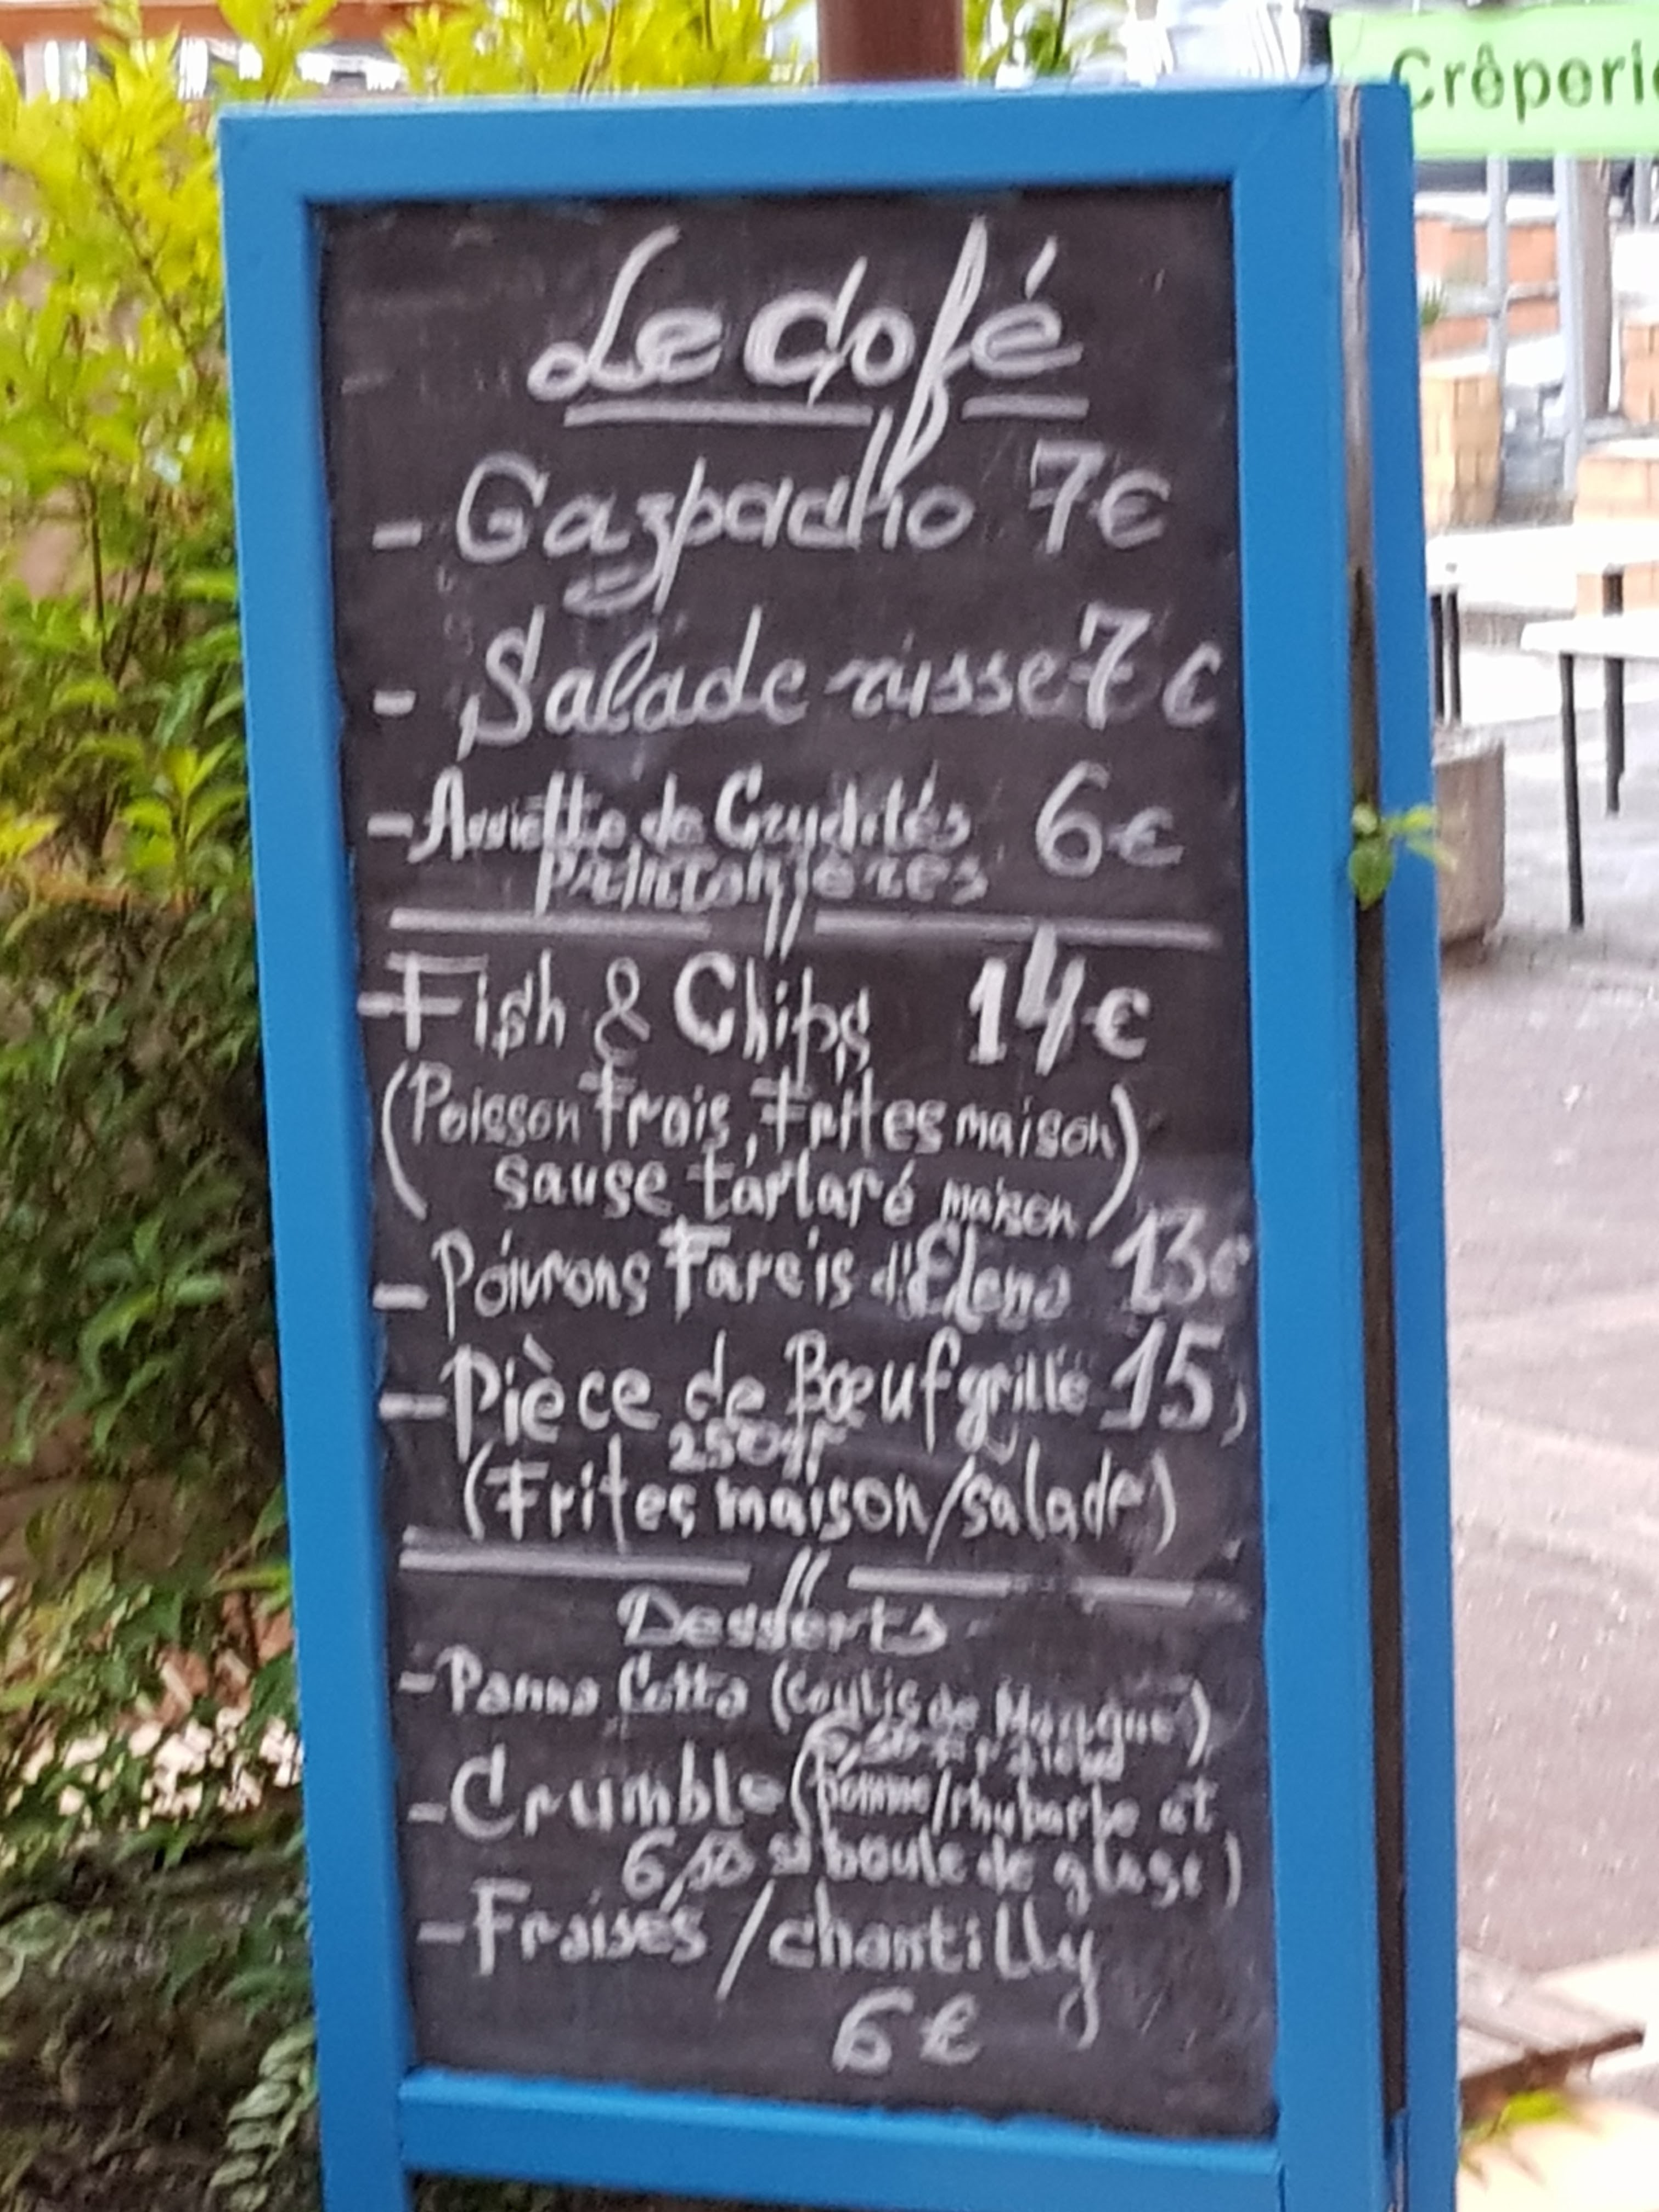 Crêperie
Le Café
- Gazpacho 7€
- Salade russe 7€
- Assiette de Crudités 6€
printanières
- Fish & Chips 14€
(Poisson frais, Frites maison)
sause tartare maison)
- Poivrons Farcis d'Elena 13€
- Pièce de Bœuf grillé 15,
250gr
(Frites maison/salade)
Desserts
- Panna Cotta (Coulis de Mangue)
- Crumble (pomme/rhubarbe et
6,50 boule de glase)
- Fraises / chantilly
6€